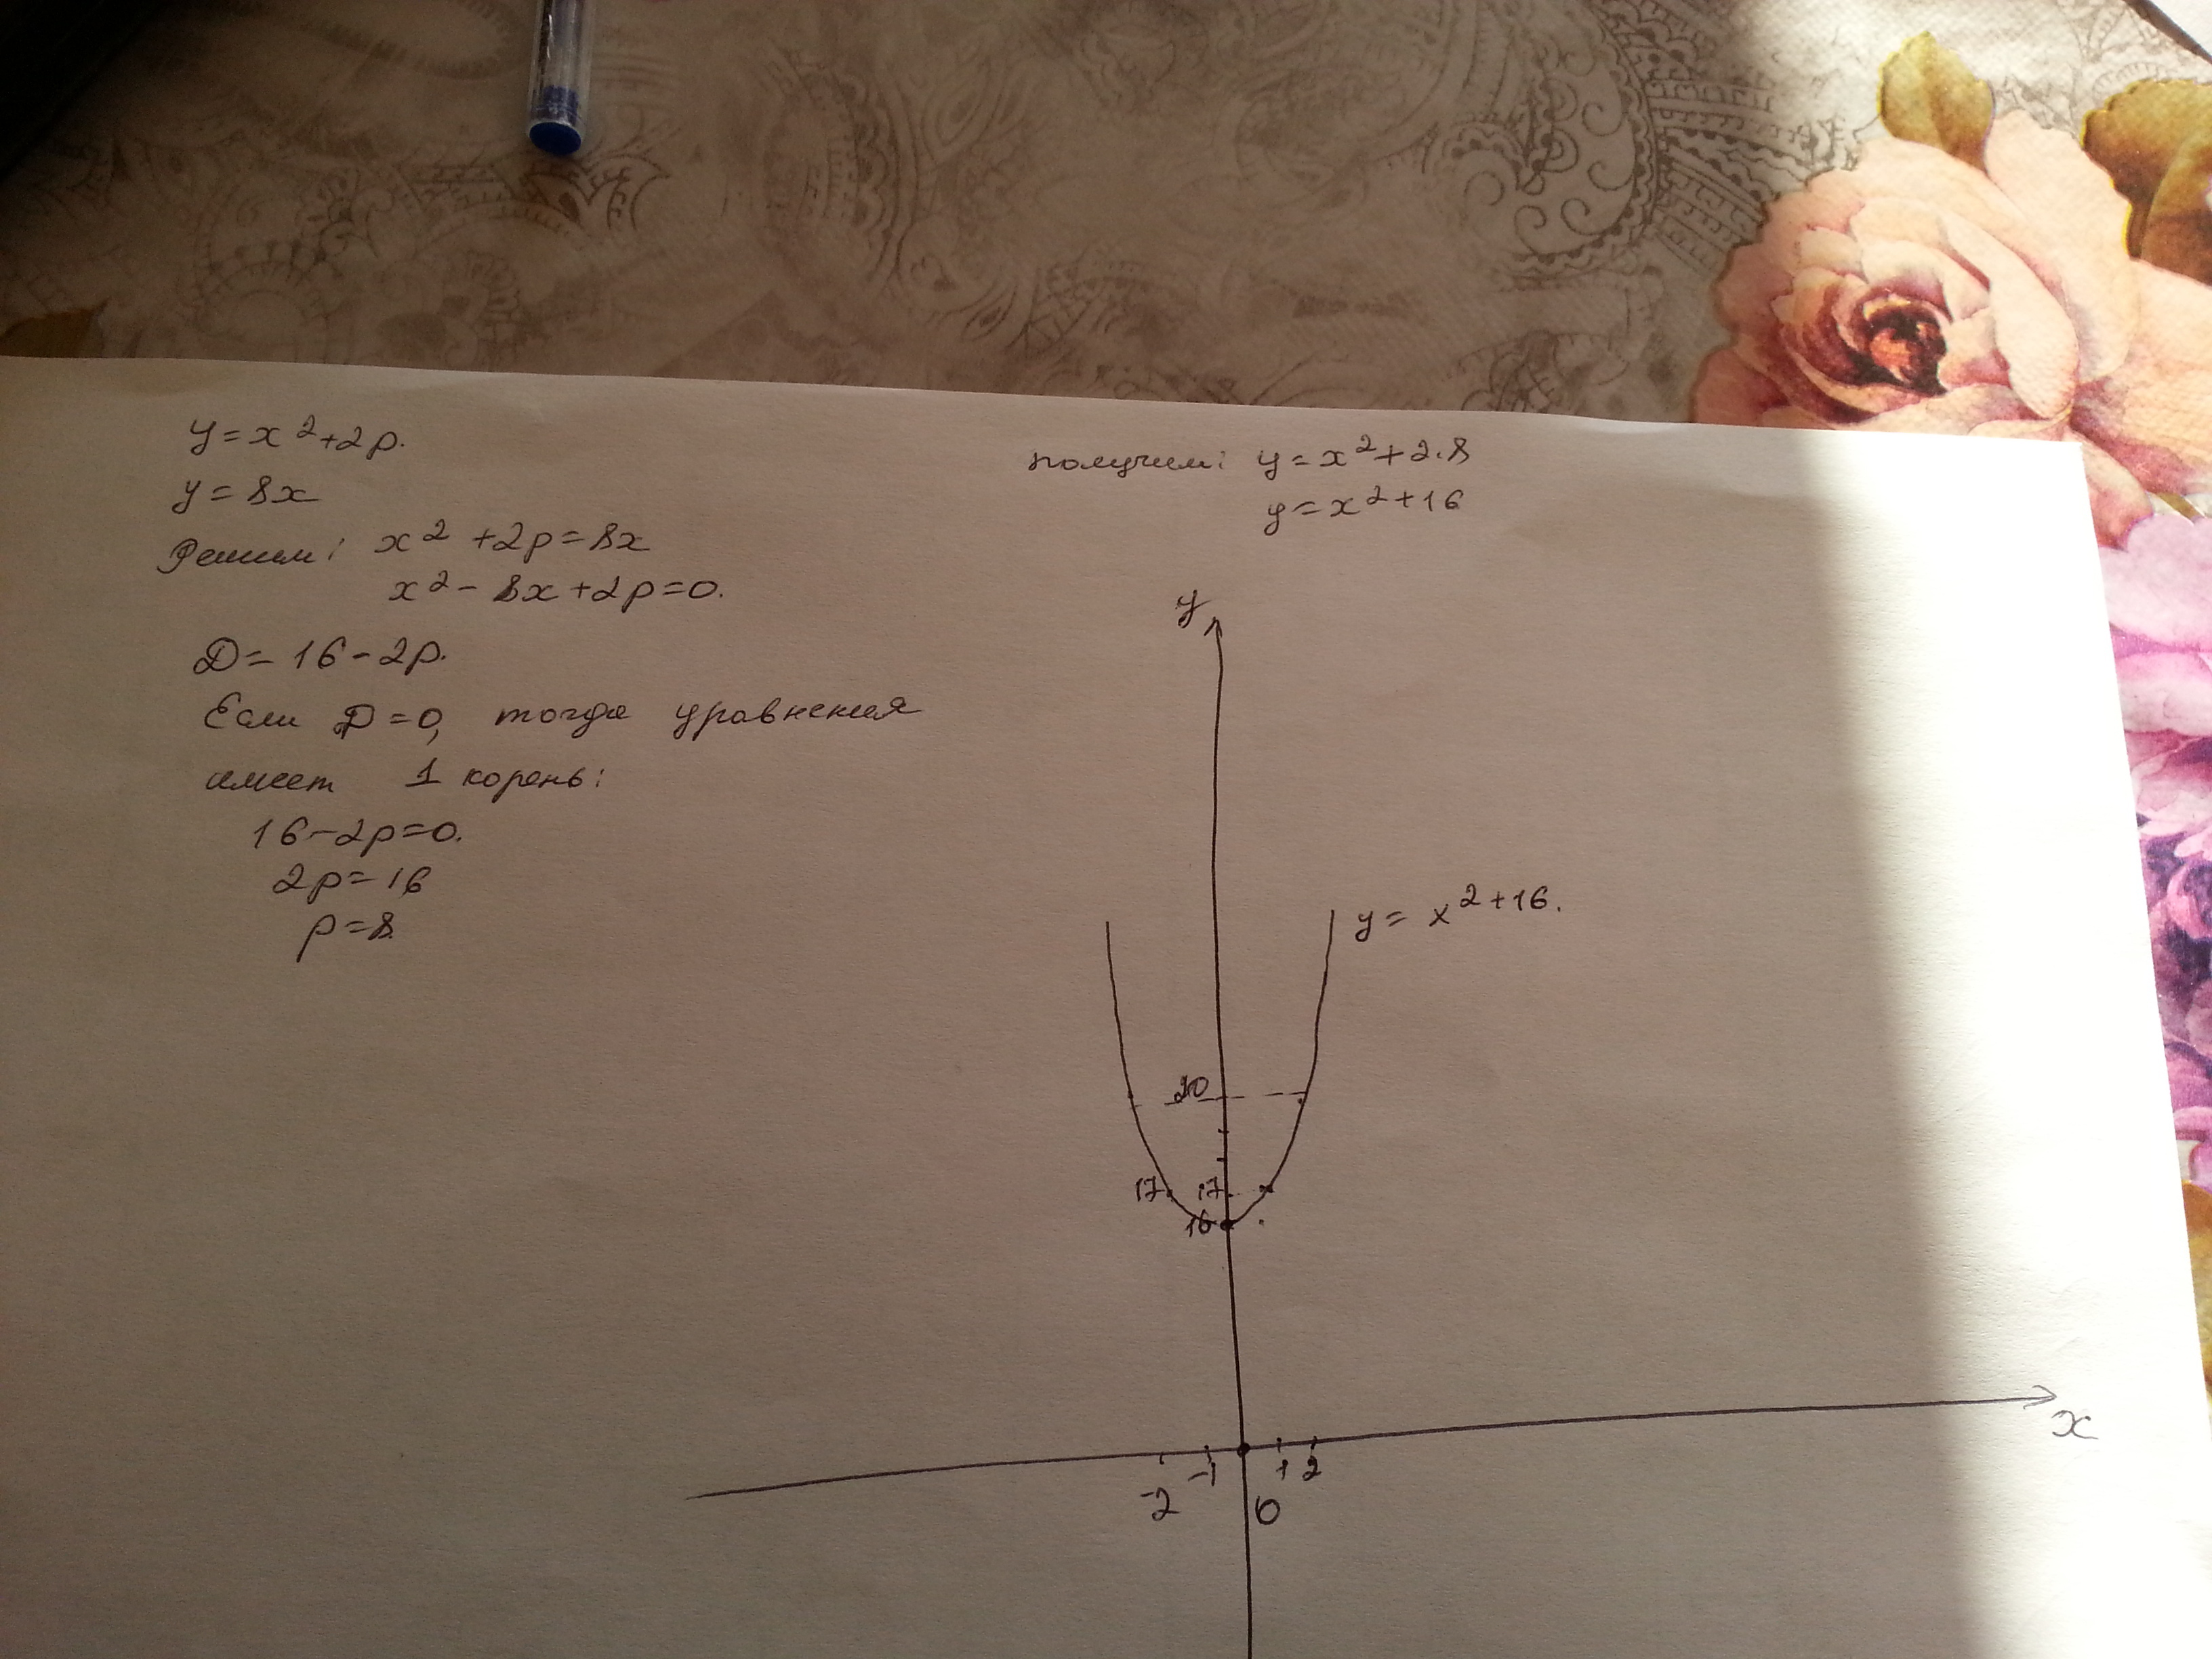 y=x²+2p.
y=8x
Решим: x²+2p=8x
x²-8x+2p=0.
D=16-2p.
Если D=0, тогда уравнения
имеет 1 корень:
16-2p=0.
2p=16
p=8.
получим: y=x²+2.8
y=x²+16
y
y= x²+16.
20
17 17
16
x
-2 -1 1 2
0